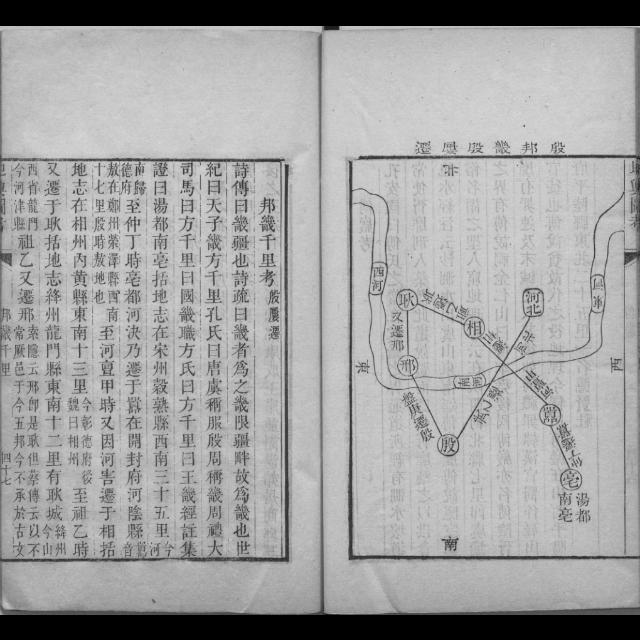 殷邦畿殷屢遷
北
西河
耿
又遷邢
邢
相
河北
囂
殷
亳
湯都
南亳
東
西
南
邦畿千里考 殷屢遷
詩傳曰畿疆也詩疏曰畿者為之畿限疆畔故為畿也世
紀曰天子畿方千里孔氏曰唐虞稱服殷周稱畿周禮大
司馬曰方千里曰國畿職方氏曰方千里曰王畿經註集
證曰湯都南亳括地志在宋州穀熟縣西南三十五里 今河
南歸德府 至仲丁時亳都河決乃遷于囂在開封府河陰縣
敖在鄭州滎澤縣西南十七里殷時敖地也 至河亶甲時又因河害遷于相括
地志在相州內黃縣東南十三里 今彰德府後魏曰相州 至祖乙時
又遷于耿括地志絳州龍門縣東南十二里有耿城 今山
西省龍門今河津縣 祖乙又遷邢 索隱云邢即是耿但奈傳云以不常厥邑于今五邦今不承於古文
邦畿千里
四十七